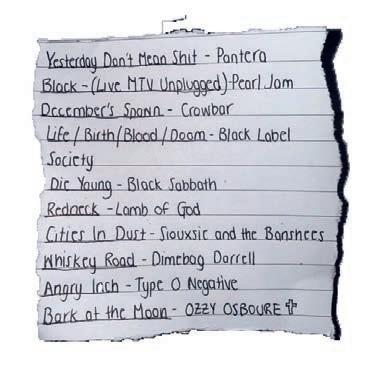 Yesterday Don't Mean Shit - Pantera
Black - (Live MTV Unplugged) - Pearl Jam
December's Spawn - Crowbar
Life / Birth / Blood / Doom - Black Label
Society
Die Young - Black Sabbath
Redneck - Lamb of God
Cities In Dust - Siouxsie and the Banshees
Whiskey Road - Dimebag Darrell
Angry Inch - Type O Negative
Bark at the Moon - OZZY OSBOURE ✝